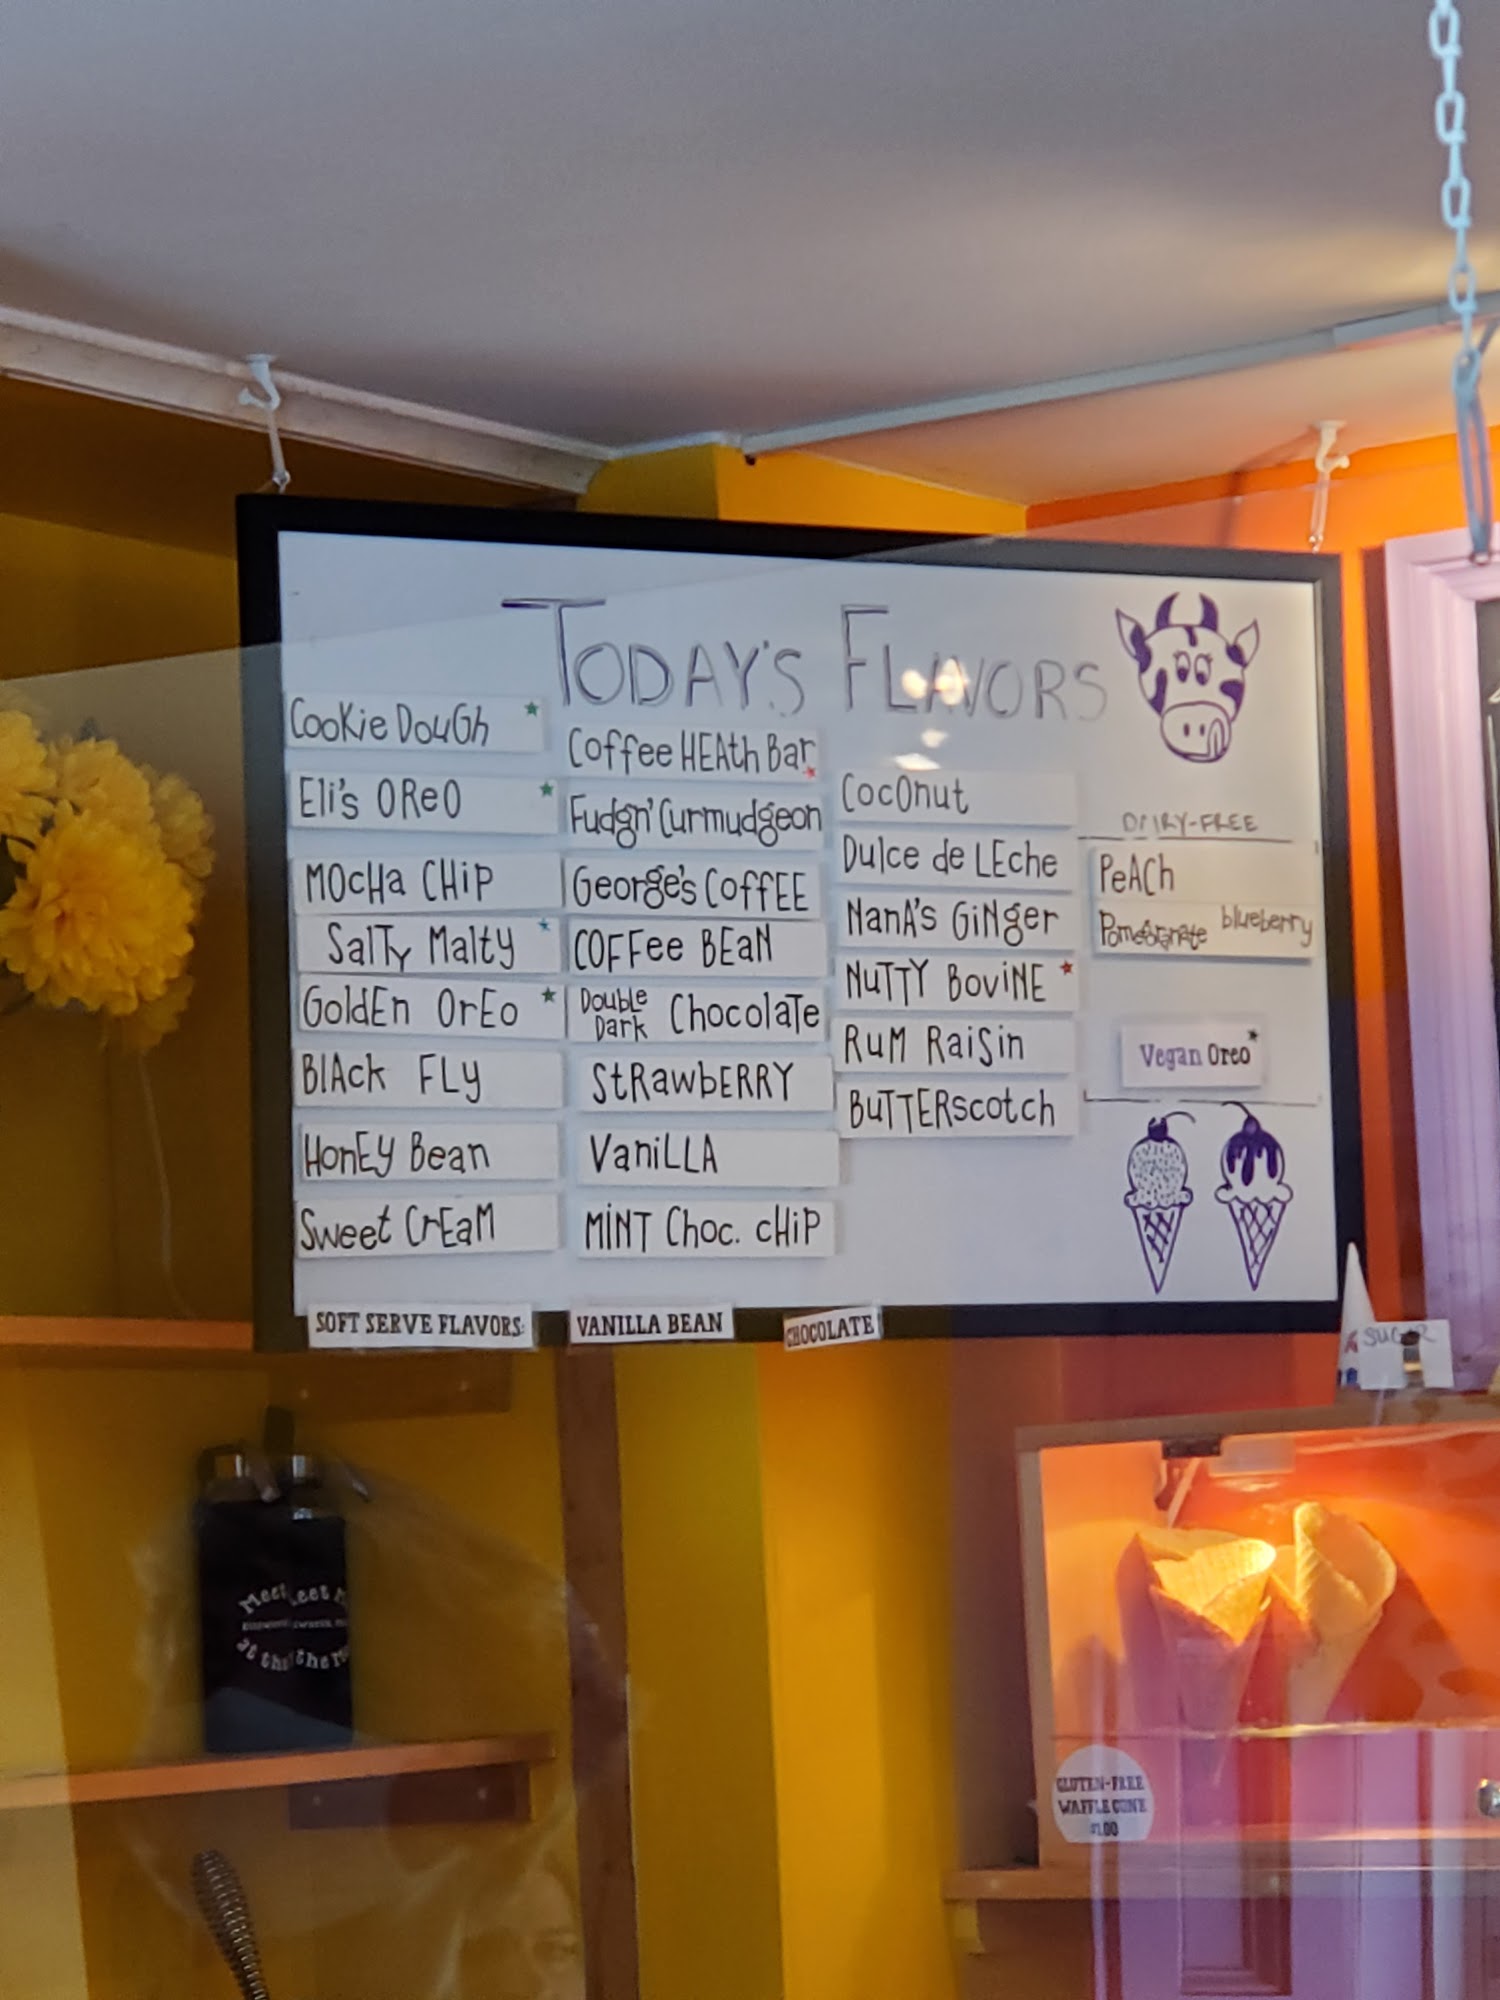 TODAY'S FLAVORS
Cookie Dough
Eli's OReO
MOcHa CHiP
SalTy Malty
GoldEn OrEo
BlAck FLy
HonEy Bean
Sweet CrEaM
Coffee HEAth Bar
Fudgn' Curmudgeon
George's CoffEE
COFFee BEaN
Double Dark ChocolaTe
StRawbERRY
VaniLLA
MiNT Choc. cHiP
CocOnut
Dulce de LEche
NanA's GiNger
NuTTY BoviNE
RuM RaiSin
BuTTERscotch
DAIRY-FREE
PeACh
Pomegranate blueberry
Vegan Oreo
SOFT SERVE FLAVORS:
VANILLA BEAN
CHOCOLATE
SUGAR
at the
GLUTEN-FREE
WAFFLE CONE
$1.00